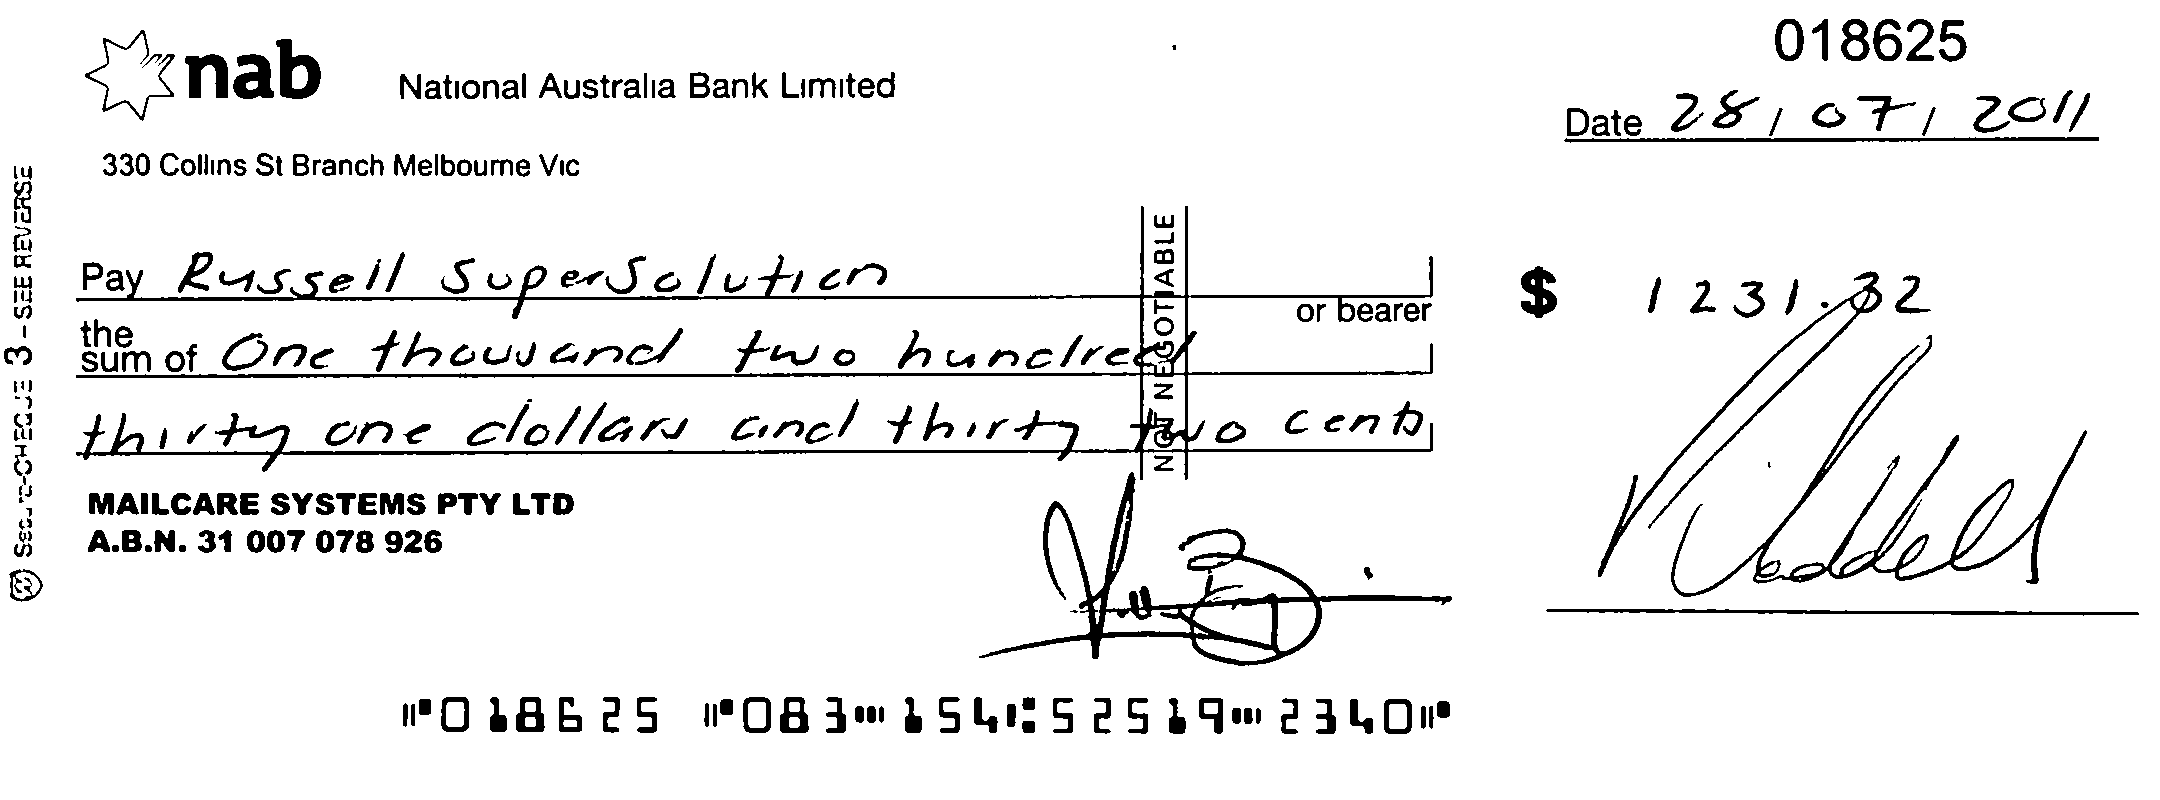 nab
National Australia Bank Limited
018625
Date 28/07/2011
330 Collins St Branch Melbourne Vic
Secure-CHEQUE 3 - SEE REVERSE
Pay Russell SuperSolution
or bearer
NOT NEGOTIABLE
$ 1231.32
the sum of One thousand two hundred
thirty one dollars and thirty two cents
MAILCARE SYSTEMS PTY LTD
A.B.N. 31 007 078 926
018625 083 154 52519 2340